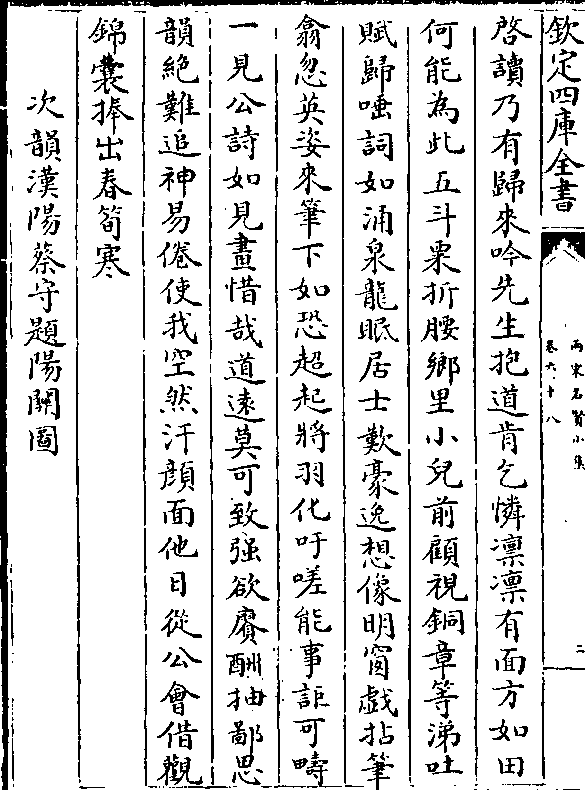 欽定四庫全書
兩宋名賢小集
卷六十八
二
啓讀乃有歸來吟先生抱道肯乞憐凛凛有面方如田
何能為此五斗粟折腰鄉里小兒前顧視銅章等涕吐
賦歸唾詞如涌泉龍眠居士歎豪逸想像明窗戲拈筆
翕忽英姿來筆下如恐超起將羽化吁嗟能事詎可疇
一見公詩如見畫惜哉道逺莫可致强欲賡酬抽鄙思
韻絶難追神易倦使我空然汗顔面他日從公會借觀
錦囊捧出春筍寒
次韻漢陽蔡守題陽關圖